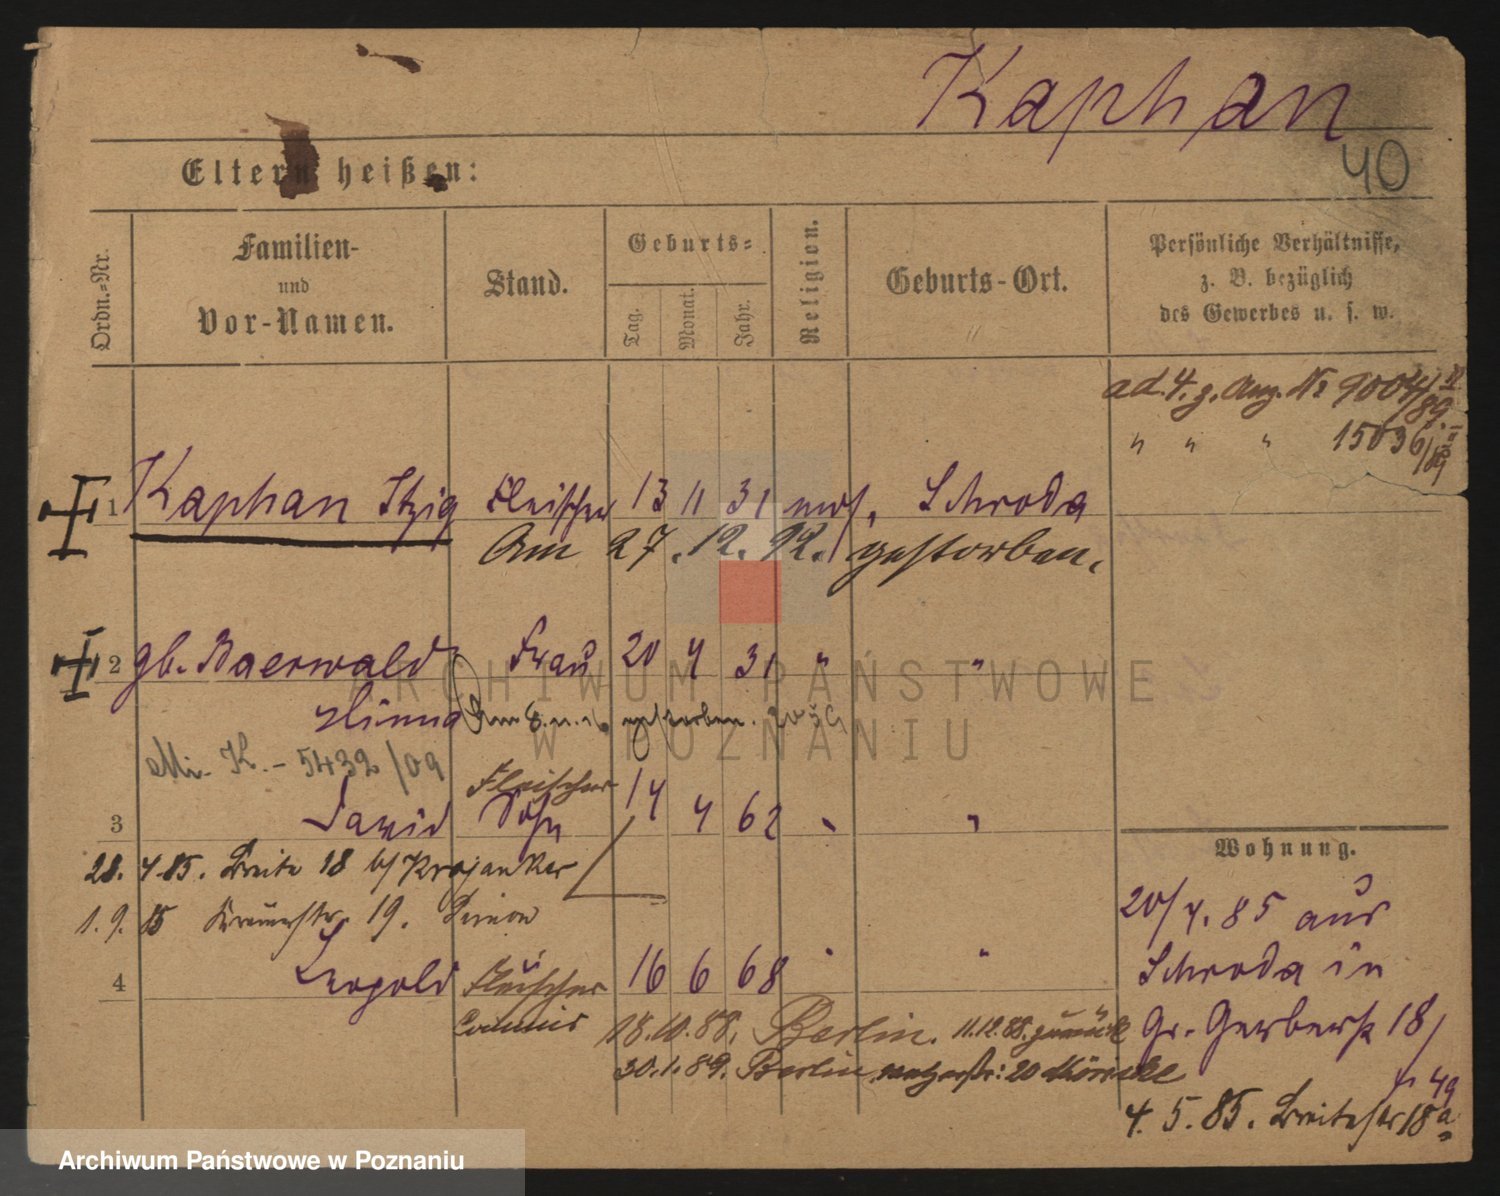 Kaphan
40
Eltern heißen:
Ordn.-Nr.
Familien-
und
Vor-Namen.
Stand.
Geburts-
Tag.
Monat.
Jahr.
Religion.
Geburts-Ort.
Persönliche Verhältnisse,
z. B. bezüglich
des Gewerbes u. s. w.
ad. 4. z. Ang. No 9004/89.
" " " 15036/89
1 Kaphan Itzig Fleischer 13 11 31 mos. Schroda
Am 27.12.92. gestorben.
2 gb. Baerwald Frau 20 4 31 " "
Hinna Am 8. gestorben.
5432/09
Fleischer
3 David Sohn 14 4 62 " "
28. 4. 85. Breite 18 b/ Krojanker
1. 9. 85 19.
4 Leopold Fleischer 16 6 68 " "
Commis 18.10.88. Berlin. 11.12.88. zurück
30.1.89. Berlin 20
Wohnung.
20/4. 85 aus
Schroda in
Gr. Gerberst 18/
49
4. 5. 85. Breitestr 18a
ARCHIWUM PAŃSTWOWE
W POZNANIU
Archiwum Państwowe w Poznaniu